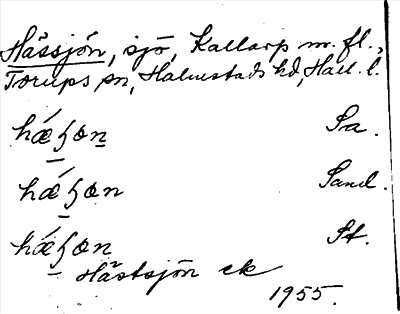 Hässjön, sjö, Kallarp m. fl.,
Torups sn, Halmstads hd, Hall. l.
hǽɧon Sa.
hǽɧon Sand.
hǽɧon St.
Hästsjön ek
1955.